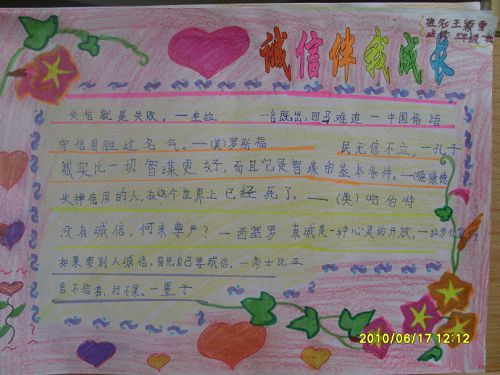 诚信伴我成长
失信就是失败。—左拉 一言既出,四马难追 —中国俗语
守信用胜过名气。—(美)罗斯福 民无信不立。—孔子
诚实比一切智谋更好,而且它是智谋的基本条件。—康德
失掉信用的人,在这个世界上已经死了。—(英)哈伯特
没有诚信,何来尊严?—西塞罗 真诚是一种心灵的开放。
如果要别人诚信,首先自己要诚信。—莎士比亚
言不信者,行不果。—墨子
2010/06/17 12:12